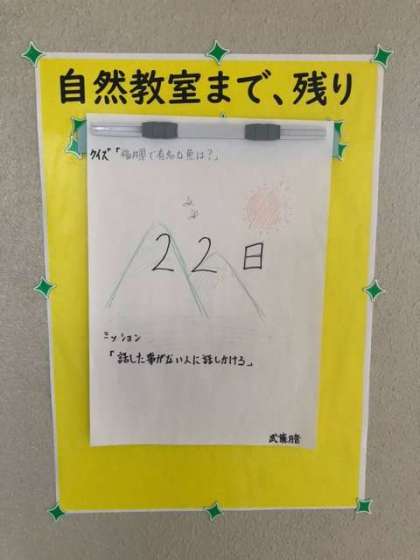 自然教室まで、残り
クイズ「福井県で有名な魚は?」
22日
ミッション
「話した事がない人に話しかけろ」